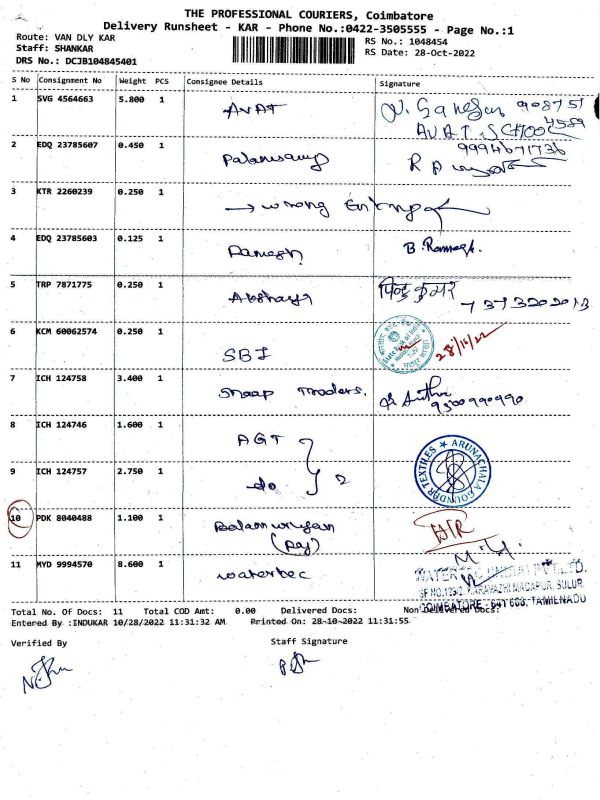 THE PROFESSIONAL COURIERS, Coimbatore
Delivery Runsheet - KAR - Phone No.:0422-3505555 - Page No.:1
Route: VAN DLY KAR
Staff: SHANKAR
DRS No.: DCJB104845401
RS No.: 1048454
RS Date: 28-Oct-2022
S No Consignment No Weight PCS Consignee Details Signature
1 SVG 4564663 5.800 1 AVAT
AVAT SCHOOL
2 EDQ 23785607 0.450 1 Palanisamy 9994671736
3 KTR 2260239 0.250 1 → wrong
4 EDQ 23785603 0.125 1 Ramesh B. Ramesh.
5 TRP 7871775 0.250 1 Akshaya
7373202013
6 KCM 60062574 0.250 1 SBI
State Bank of India
7 ICH 124758 3.400 1 Traders.
9500990990
8 ICH 124746 1.600 1 AGT
9 ICH 124757 2.750 1 do 2
ARUNACHALA GOUNDER TEXTILES
10 PDK 8040488 1.100 1 Balamurugan
11 MYD 9994570 8.600 1 Watertec
MADAPUR, SULUR,
COIMBATORE - 641 668, TAMILNADU
Total No. Of Docs: 11 Total COD Amt: 0.00 Delivered Docs: Non Delivered Docs:
Entered By :INDUKAR 10/28/2022 11:31:32 AM Printed On: 28-10-2022 11:31:55
Verified By Staff Signature